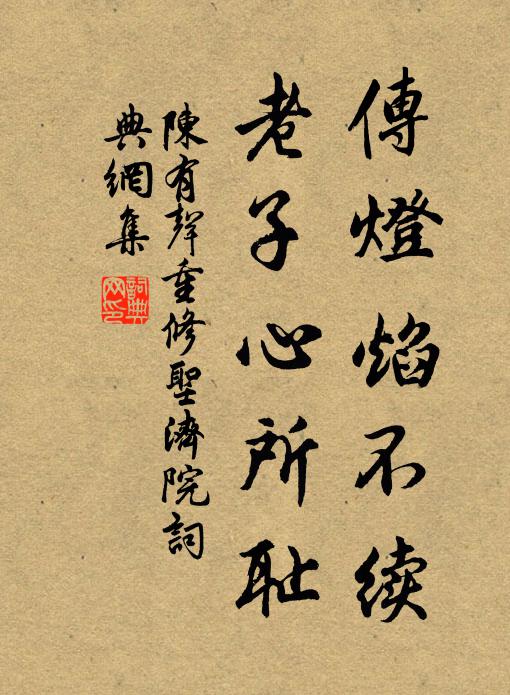 傳燈焰不续
老子心所耻
陳有聲重修聖濟院詞
典網集
詞典
网印